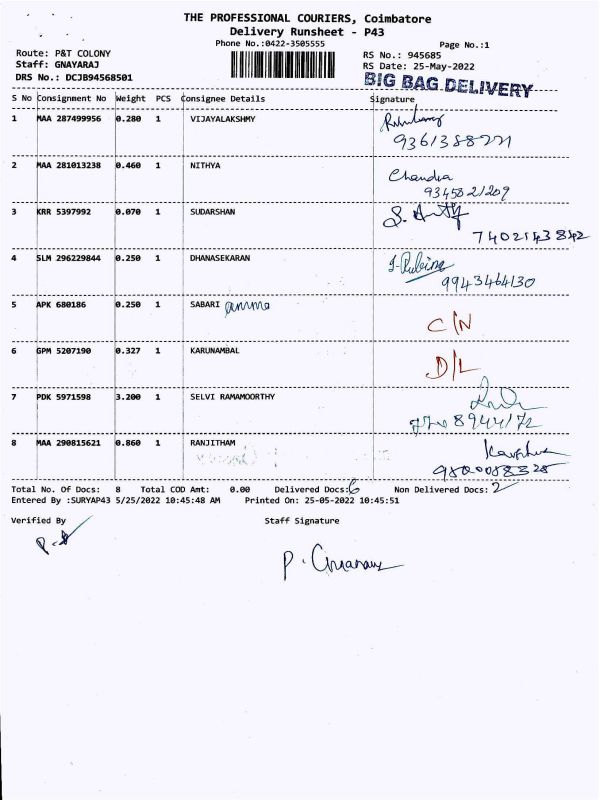 THE PROFESSIONAL COURIERS, Coimbatore
Delivery Runsheet - P43
Phone No.:0422-3505555
Page No.:1
Route: P&T COLONY
Staff: GNAYARAJ
DRS No.: DCJB94568501
RS No.: 945685
RS Date: 25-May-2022
BIG BAG DELIVERY
S No Consignment No Weight PCS Consignee Details Signature
1 MAA 287499956 0.280 1 VIJAYALAKSHMY
2 MAA 281013238 0.460 1 NITHYA Chandra
9345821209
3 KRR 5397992 0.070 1 SUDARSHAN
7402143842
4 SLM 296229844 0.250 1 DHANASEKARAN J-Rubina
9943464130
5 APK 680186 0.250 1 SABARI amma C/N
6 GPM 5207190 0.327 1 KARUNAMBAL D/L
7 PDK 5971598 3.200 1 SELVI RAMAMOORTHY
8 MAA 290815621 0.860 1 RANJITHAM
Total No. Of Docs: 8 Total COD Amt: 0.00 Delivered Docs:6 Non Delivered Docs: 2
Entered By :SURYAP43 5/25/2022 10:45:48 AM Printed On: 25-05-2022 10:45:51
Verified By Staff Signature